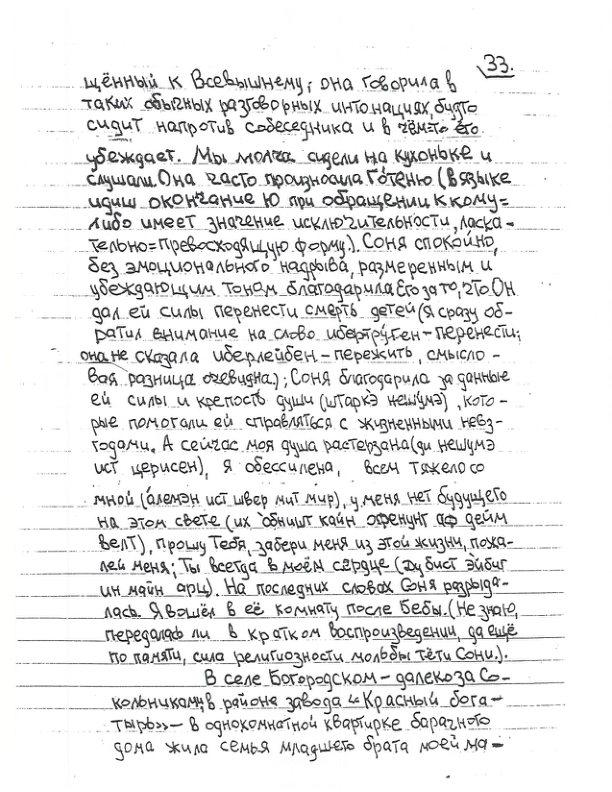 33.
щённый к Всевышнему; она говорила в
таких обычных разговорных интонациях, будто
сидит напротив собеседника и в чём-то его
убеждает. Мы молча сидели на кухоньке и
слушали. Она часто произносила Готеню (в языке
идиш окончание Ю при обращении к кому=
либо имеет значение исключительности, ласка-
тельно=превосходящую форму.). Соня спокойно,
без эмоционального надрыва, размеренным и
убеждающим тоном благодарила Его за то, что Он
дал ей силы перенести смерть детей (я сразу об-
ратил внимание на слово ибертруген – перенести;
она не сказала иберлейбен – пережить, смысло-
вая разница очевидна.); Соня благодарила за данные
ей силы и крепость души (штаркэ нешумэ), кото-
рые помогали ей справляться с жизненными невз-
годами. А сейчас моя душа растерзана (ди нешумэ
ист церисен), я обессилена, всем тяжело со
мной (алемэн ист швер мит мир), у меня нет будущего
на этом свете (их обништ кайн офенунг аф дейм
велт), прошу Тебя, забери меня из этой жизни, пожа-
лей меня; Ты всегда в моём сердце (ду бист эйбиг
ин майн арц). На последних словах Соня разрыда-
лась. Я вошёл в её комнату после Бебы. (Не знаю,
передалась ли в кратком воспроизведении, да ещё
по памяти, сила религиозности мольбы тёти Сони.).
В селе Богородском – далеко за Со-
кольниками, в районе завода «Красный бога-
тырь» – в однокомнатной квартирке барачного
дома жила семья младшего брата моей ма-